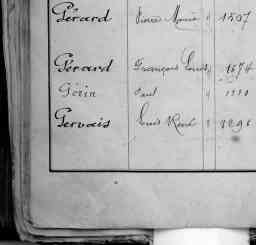 Gérard Pierre Marie " 1507
Gérard François Louis " 1674
Gérin Paul "
Gervais Louis René " 3296